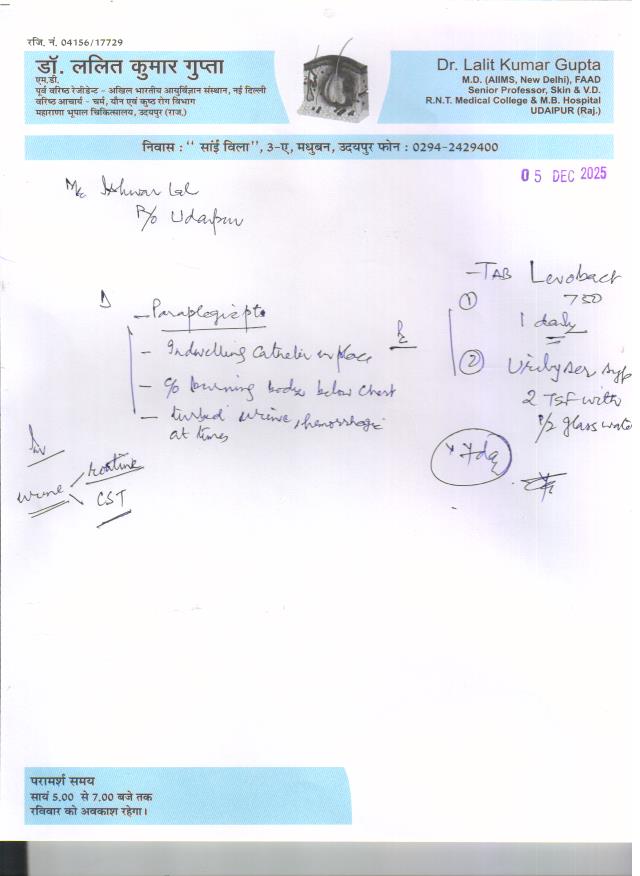 रजि. नं. 04156/17729
डॉ. ललित कुमार गुप्ता
एम.डी.
पूर्व वरिष्ठ रेजीडेन्ट - अखिल भारतीय आयुर्विज्ञान संस्थान, नई दिल्ली
वरिष्ठ आचार्य - चर्म, यौन एवं कुष्ठ रोग विभाग
महाराणा भूपाल चिकित्सालय, उदयपुर (राज.)
Dr. Lalit Kumar Gupta
M.D. (AIIMS, New Delhi), FAAD
Senior Professor, Skin & V.D.
R.N.T. Medical College & M.B. Hospital
UDAIPUR (Raj.)
निवास : " सांई विला", 3-ए, मधुबन, उदयपुर फोन : 0294-2429400
05 DEC 2025
Mr. Ishwar Lal
R/o Udaipur
- Paraplegic pt.
- Indwelling Catheter in place
- c/o burning body below chest
- turbid urine, hemorrhagic
at times
Inv
urine
routine
CST
- TAB Levobact
① 750
1 daily
② syp
2 TSF with
1/2 glass water
x 7 day
परामर्श समय
सायं 5.00 से 7.00 बजे तक
रविवार को अवकाश रहेगा।